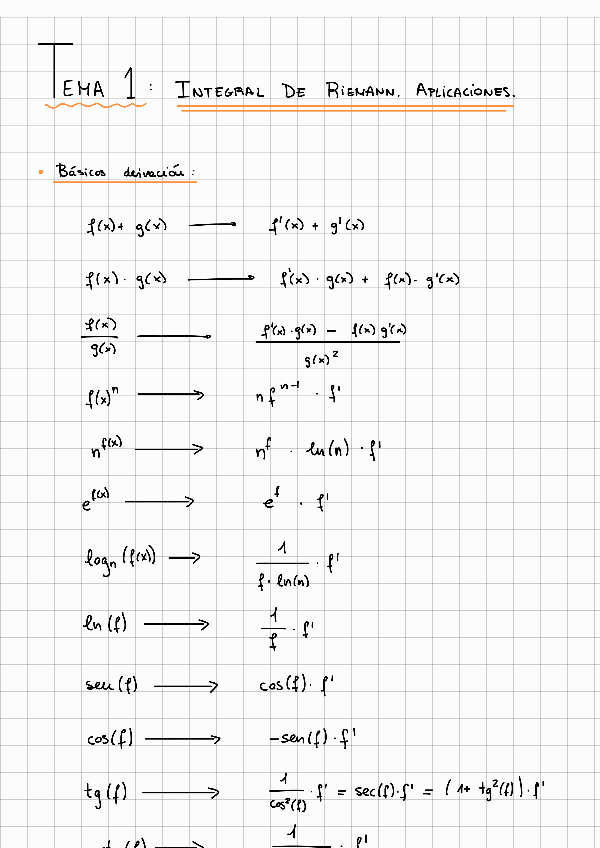 TEMA 1: INTEGRAL DE RIEMANN. APLICACIONES.
• Básicos derivación:
f(x)+ g(x) ⟶ f'(x) + g'(x)
f(x) · g(x) ⟶ f'(x) · g(x) + f(x) · g'(x)
f(x)/g(x) ⟶ (f'(x) · g(x) − f(x) g'(x))/g(x)²
f(x)ⁿ ⟶ n fⁿ⁻¹ · f'
n^f(x) ⟶ n^f · ln(n) · f'
e^f(x) ⟶ e^f · f'
logₙ(f(x)) ⟶ 1/(f · ln(n)) · f'
ln(f) ⟶ 1/f · f'
sen(f) ⟶ cos(f) · f'
cos(f) ⟶ −sen(f) · f'
tg(f) ⟶ 1/cos²(f) · f' = sec(f) · f' = (1+ tg²(f)) · f'